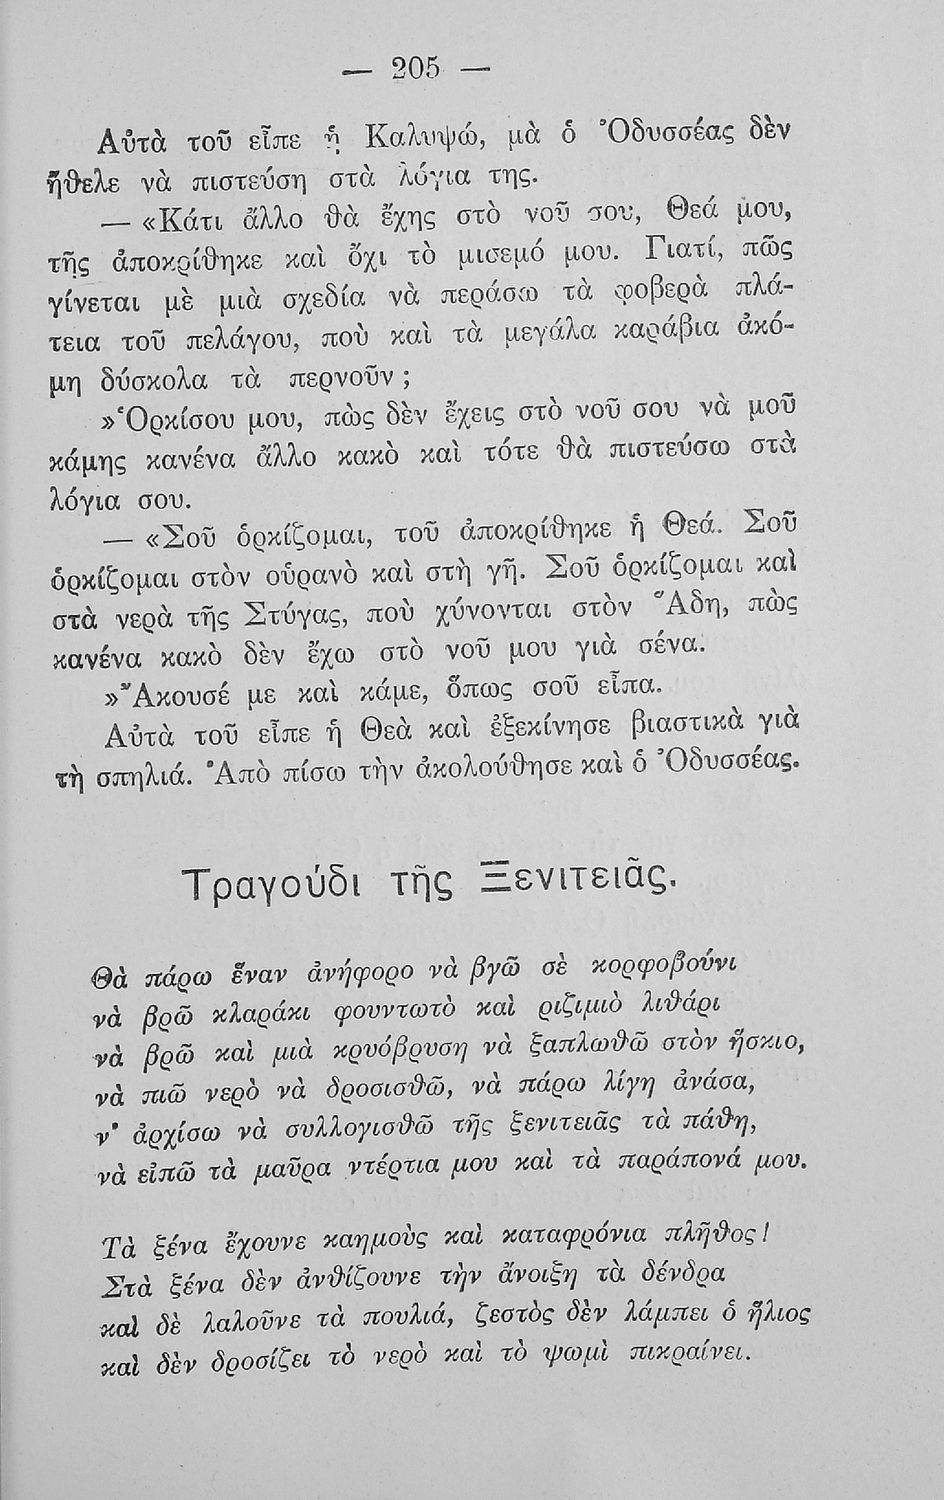 — 205 —
Αὐτὰ τοῦ εἶπε ἡ Καλυψώ, μὰ ὁ Ὀδυσσέας δὲν
ἤθελε νὰ πιστεύση στὰ λόγια της.
— «Κάτι ἄλλο θὰ ἔχης στὸ νοῦ σου, Θεά μου,
τῆς ἀποκρίθηκε καὶ ὄχι τὸ μισεμό μου. Γιατί, πῶς
γίνεται μὲ μιὰ σχεδία νὰ περάσω τὰ φοβερὰ πλά-
τεια τοῦ πελάγου, ποὺ καὶ τὰ μεγάλα καράβια ἀκό-
μη δύσκολα τὰ περνοῦν ;
»Ὁρκίσου μου, πὼς δὲν ἔχεις στὸ νοῦ σου νὰ μοῦ
κάμης κανένα ἄλλο κακὸ καὶ τότε θὰ πιστεύσω στὰ
λόγια σου.
— «Σοῦ ὁρκίζομαι, τοῦ ἀποκρίθηκε ἡ Θεά. Σοῦ
ὁρκίζομαι στὸν οὐρανὸ καὶ στὴ γῆ. Σοῦ ὁρκίζομαι καὶ
στὰ νερὰ τῆς Στύγας, ποὺ χύνονται στὸν Ἅδη, πὼς
κανένα κακὸ δὲν ἔχω στὸ νοῦ μου γιὰ σένα.
»Ἄκουσέ με καὶ κάμε, ὅπως σοῦ εἶπα.
Αὐτὰ τοῦ εἶπε ἡ Θεὰ καὶ ἐξεκίνησε βιαστικὰ γιὰ
τὴ σπηλιά. Ἀπὸ πίσω τὴν ἀκολούθησε καὶ ὁ Ὀδυσσέας.
Τραγούδι τῆς Ξενιτειᾶς.
Θὰ πάρω ἕναν ἀνήφορο νὰ βγῶ σὲ κορφοβούνι
νὰ βρῶ κλαράκι φουντωτὸ καὶ ριζιμιὸ λιθάρι
νὰ βρῶ καὶ μιὰ κρυόβρυση νὰ ξαπλωθῶ στὸν ἥσκιο,
νὰ πιῶ νερὸ νὰ δροσισθῶ, νὰ πάρω λίγη ἀνάσα,
ν' ἀρχίσω νὰ συλλογισθῶ τῆς ξενιτειᾶς τὰ πάθη,
νὰ εἰπῶ τὰ μαῦρα ντέρτια μου καὶ τὰ παράπονά μου.
Τὰ ξένα ἔχουνε καημοὺς καὶ καταφρόνια πλῆθος!
Στὰ ξένα δὲν ἀνθίζουνε τὴν ἄνοιξη τὰ δένδρα
καὶ δὲ λαλοῦνε τὰ πουλιά, ζεστὸς δὲν λάμπει ὁ ἥλιος
καὶ δὲν δροσίζει τὸ νερὸ καὶ τὸ ψωμὶ πικραίνει.